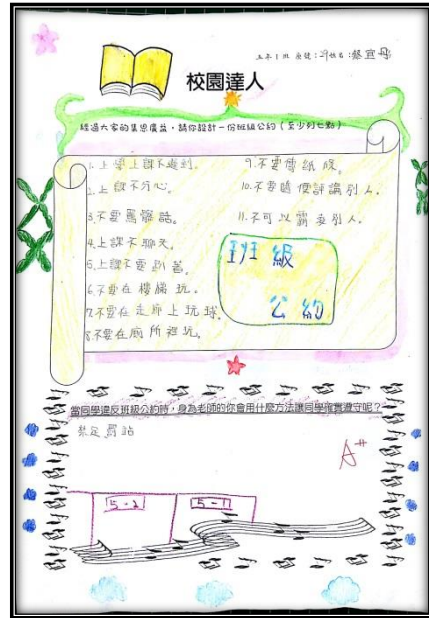 五年1班 座號:29姓名:蔡宜母
校園達人
經過大家的集思廣益,請你設計一份班級公約(至少列七點)
1.上學上課不遲到。
2.上課不分心。
3.不要罵髒話。
4.上課不聊天。
5.上課不要趴著。
6.不要在樓梯玩。
7.不要在走廊上玩球。
8.不要在廁所裡玩。
9.不要傳紙條。
10.不要隨便評論別人。
11.不可以霸凌別人。
班級
公約
當同學違反班級公約時,身為老師的你會用什麼方法讓同學確實遵守呢?
禁足罰站
A#
5-2
5-1